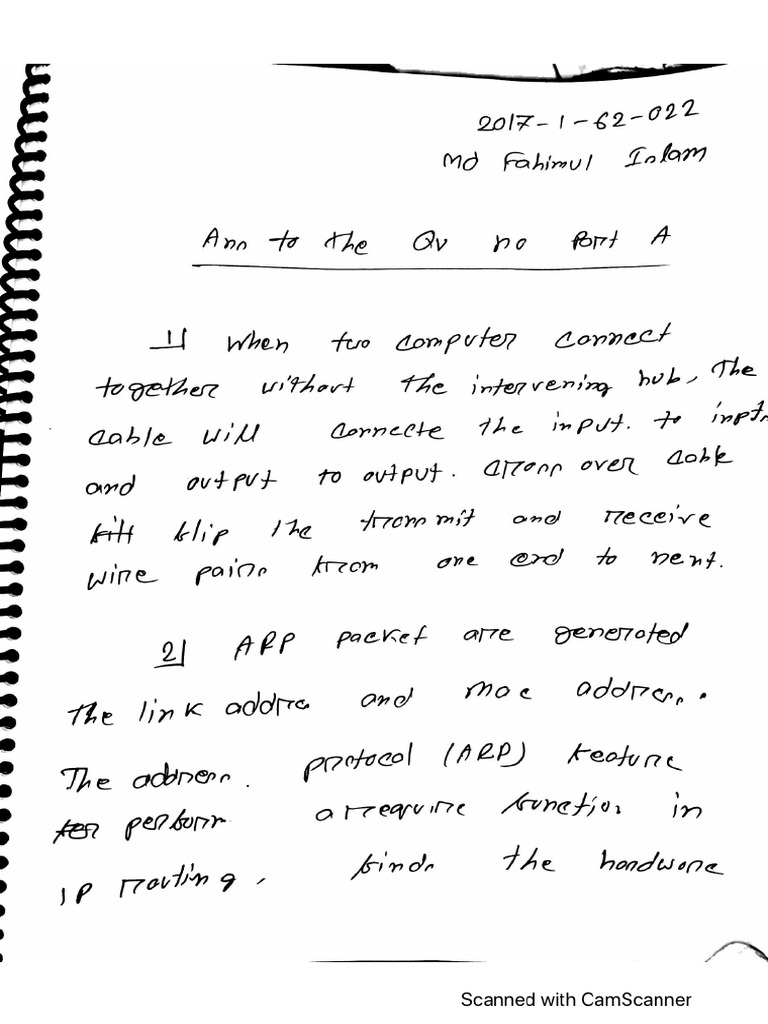 2017-1-62-022
Md Fahimul Islam
Ans to the Qu no Part A
1) When two computer connect
together without the intervening hub, The
cable will connecte the input. to input
and output to output. cross over cable
flip the transmit and receive
wire pairs from one end to next.
2) ARP packet are generated
the link addres and mac address.
The address. protocol (ARP) feature
perform a require function in
IP routing, finds the hardware
Scanned with CamScanner